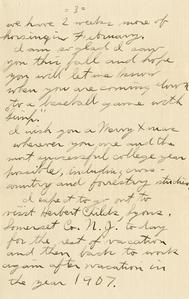 - 3 -
we have 2 weeks more of
nursing in February.
I am so glad I saw
you this fall and hope
you will let us know
when you are coming
"to a baseball game with
I wish you a Merry Xmas
wherever you are and the
most successful college year
possible, including cross-
country and forestry studies.
I expect to go out to
visit Herbert Childs, Lyons,
Somerset Co. N. J. today
for the rest of vacation
and then back to work
again after vacation in
the year 1907.